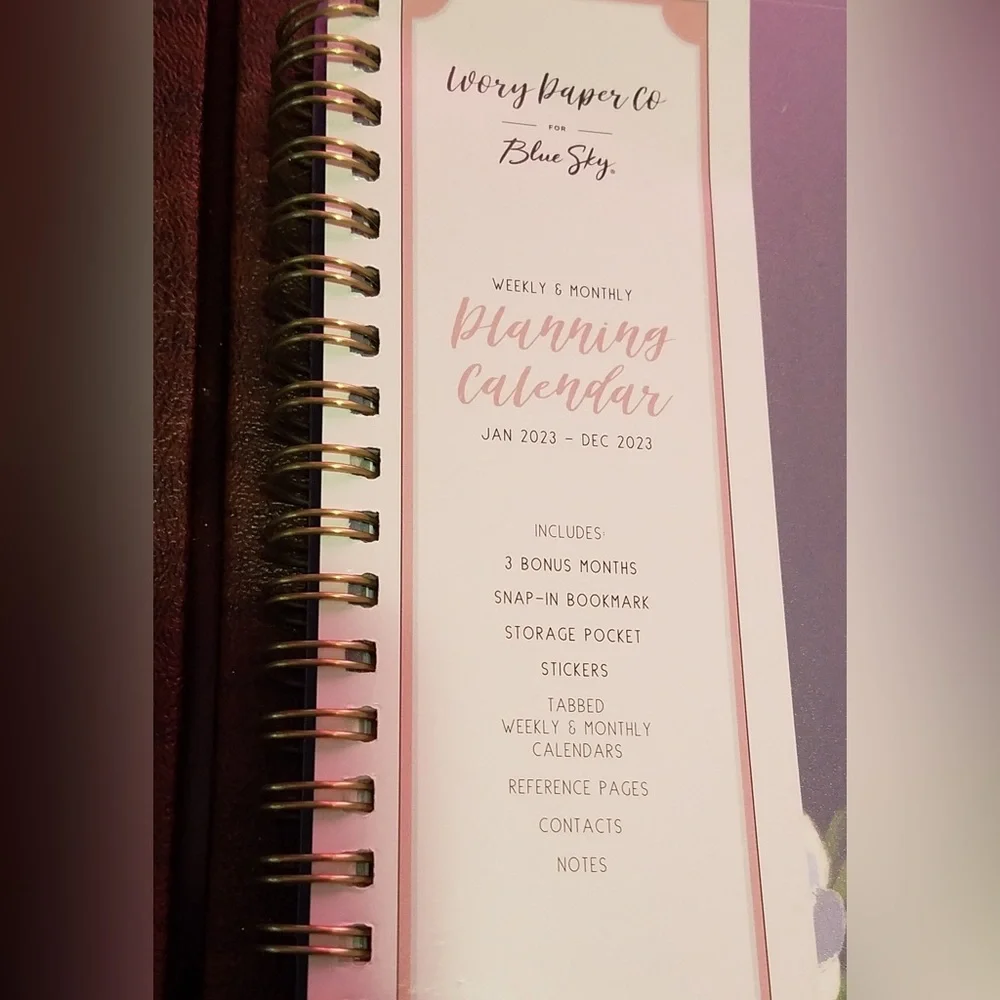 Ivory Paper Co
FOR
Blue Sky®
WEEKLY & MONTHLY
Planning
Calendar
JAN 2023 – DEC 2023
INCLUDES:
3 BONUS MONTHS
SNAP-IN BOOKMARK
STORAGE POCKET
STICKERS
TABBED
WEEKLY & MONTHLY
CALENDARS
REFERENCE PAGES
CONTACTS
NOTES